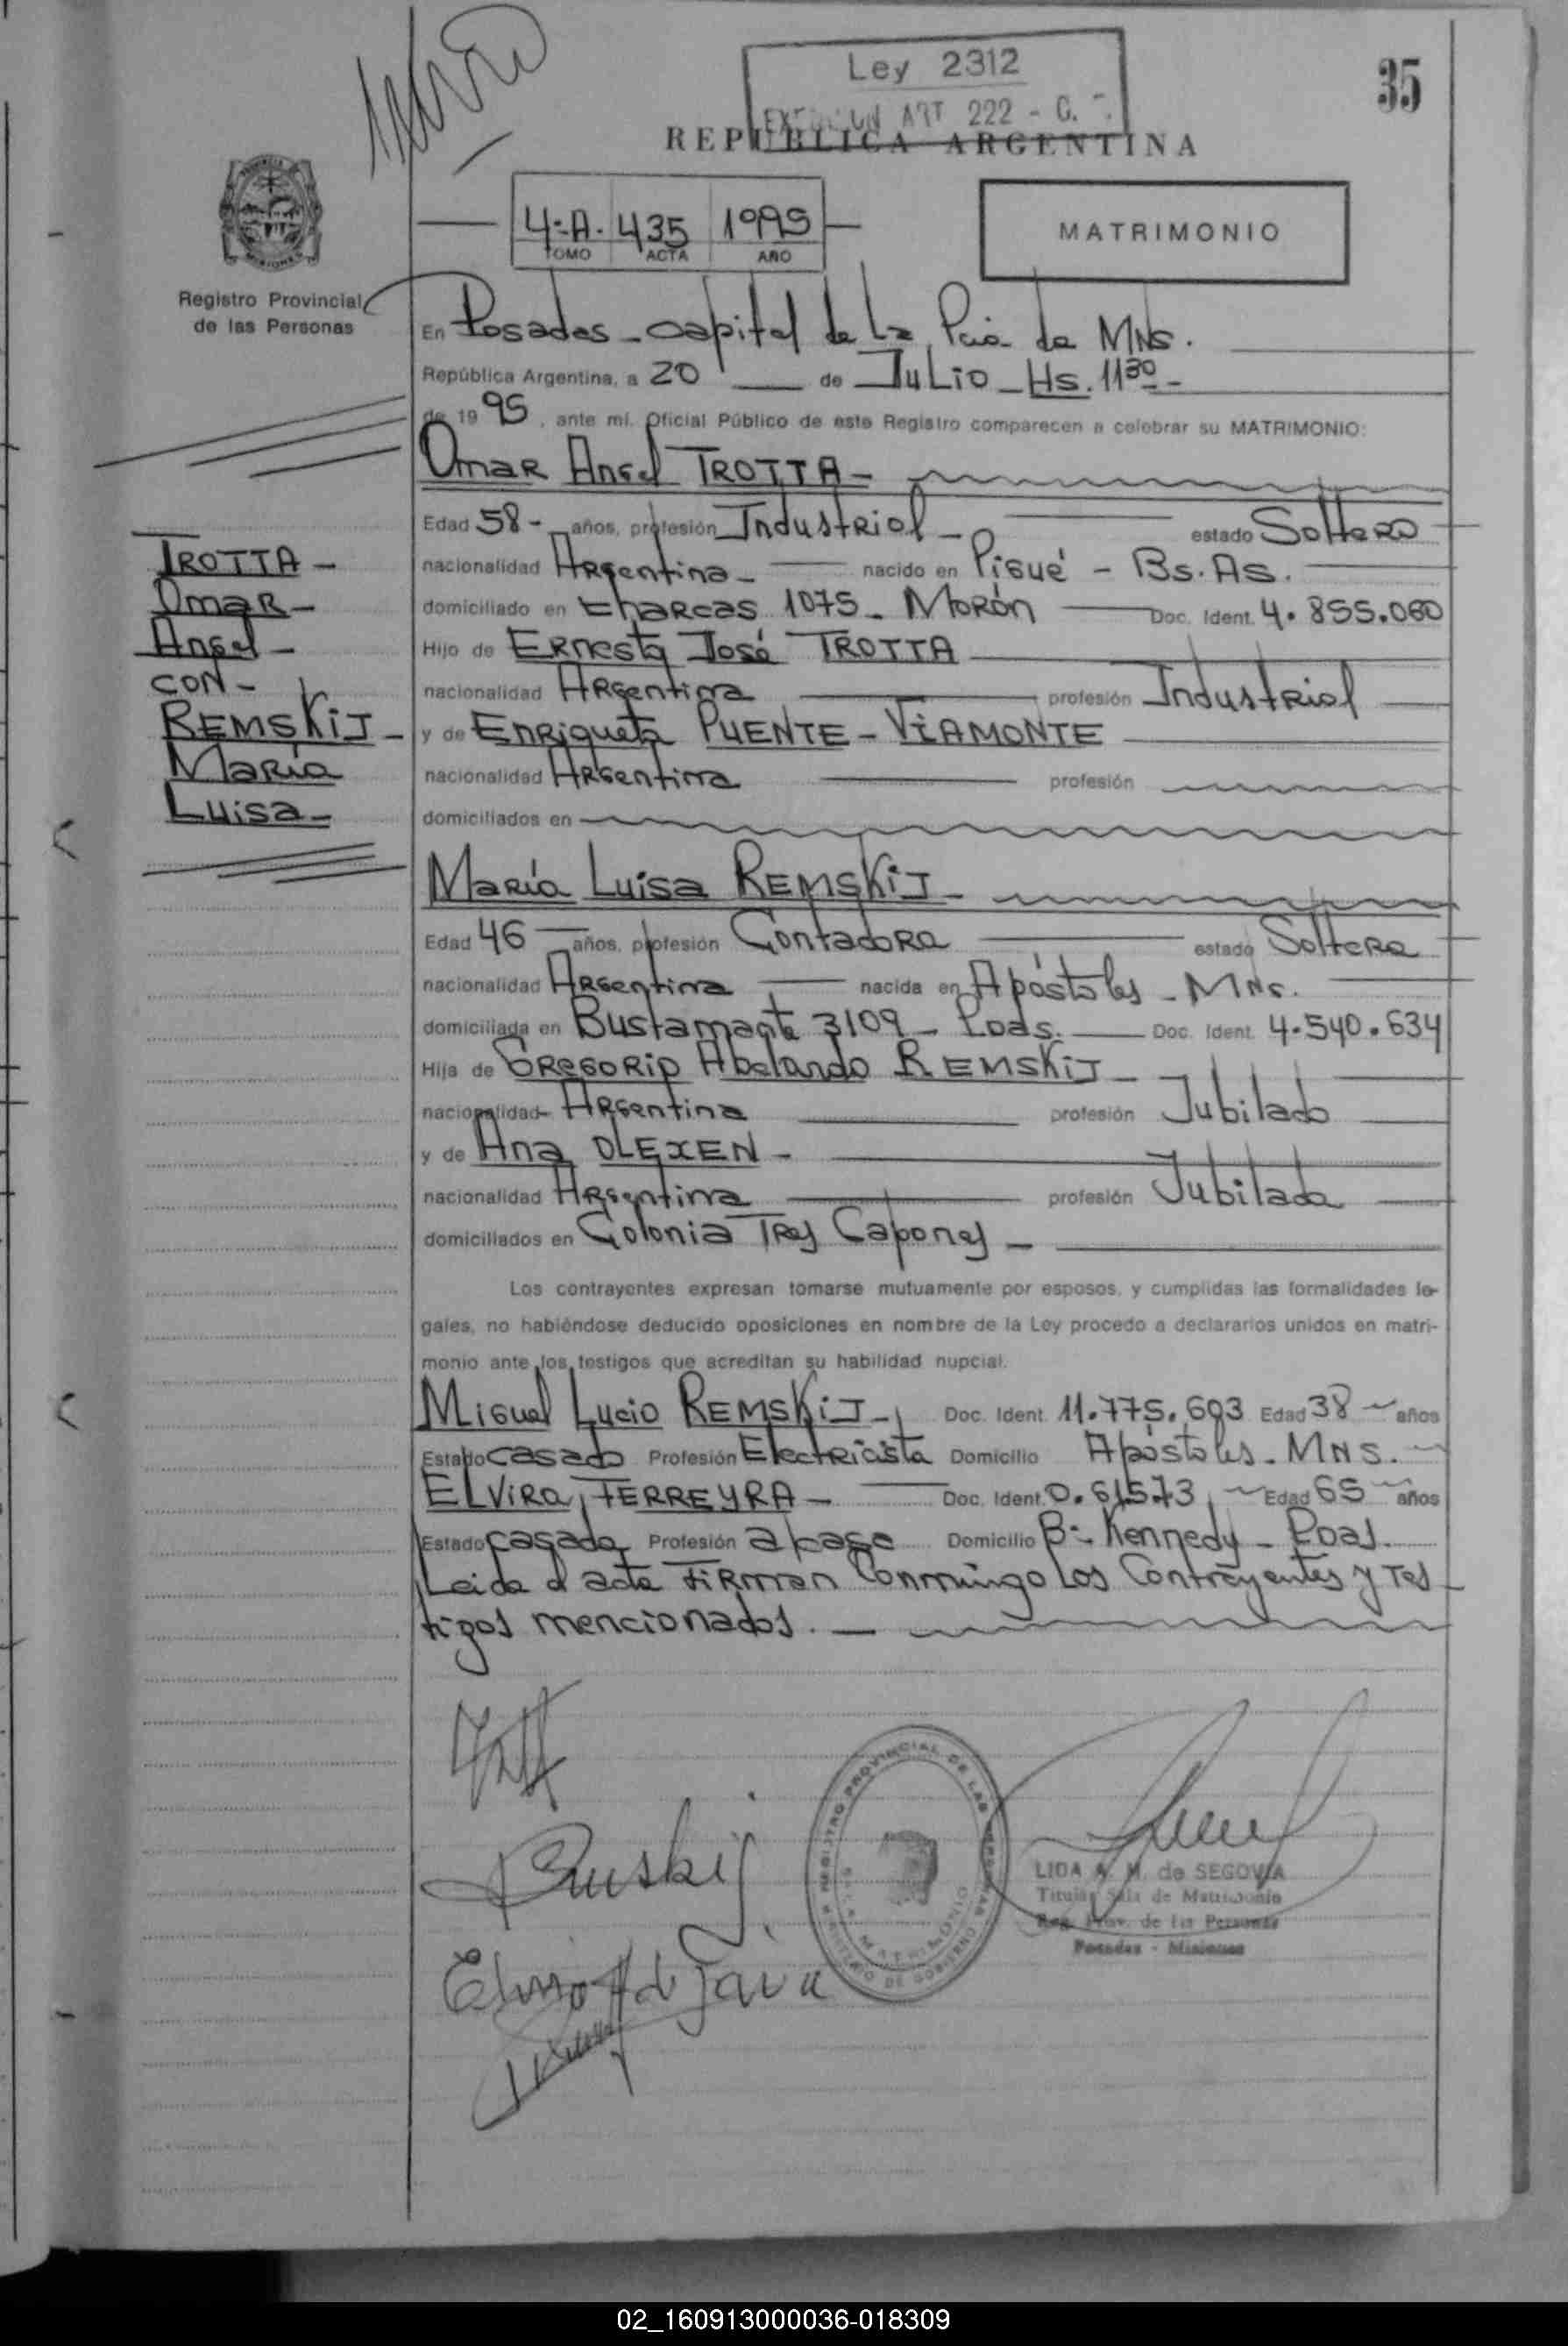 Ley 2312
ART 222 - C.
35
REPUBLICA ARGENTINA
4º-A. 435 1995
TOMO ACTA AÑO
MATRIMONIO
Registro Provincial
de las Personas
En Posadas - Capital de la Pcia de MNS.
República Argentina, a 20 de Julio - Hs. 11³⁰ -
de 1995, ante mí, Oficial Público de este Registro comparecen a celebrar su MATRIMONIO:
Omar Angel TROTTA -
Edad 58 - años, profesión Industrial - estado Soltero
nacionalidad Argentina - nacido en Pigué - Bs. As.
domiciliado en Charcas 1075 - Morón Doc. Ident. 4.855.060
Hijo de Ernesto José TROTTA
nacionalidad Argentina profesión Industrial
y de Enriqueta PUENTE - VIAMONTE
nacionalidad Argentina profesión
domiciliados en
TROTTA -
Omar -
Angel -
CON -
REMSKIJ -
María
Luisa -
María Luisa REMSKIJ -
Edad 46 años, profesión Contadora estado Soltera
nacionalidad Argentina nacida en Apóstoles - MNS.
domiciliada en Bustamante 3109 - Pdas. Doc. Ident. 4.540.634
Hija de Gregorio Abelardo REMSKIJ -
nacionalidad - Argentina profesión Jubilado
y de Ana OLEXEN -
nacionalidad Argentina profesión Jubilada
domiciliados en Colonia Tres Capones -
Los contrayentes expresan tomarse mutuamente por esposos, y cumplidas las formalidades le-
gales, no habiéndose deducido oposiciones en nombre de la Ley procedo a declararlos unidos en matri-
monio ante los testigos que acreditan su habilidad nupcial.
Miguel Lucio REMSKIJ - Doc. Ident. 11.775.693 Edad 38 años
Estado casado Profesión Electricista Domicilio Apóstoles - MNS.
ELVIRA FERREYRA - Doc. Ident. 0.61573 Edad 65 años
Estado casada Profesión a/casa Domicilio Bº - Kennedy - Pdas.
Leida el acta firman Conmingo los Contrayentes y Tes -
tigos mencionados. -
REGISTRO PROVINCIAL DE LAS PERSONAS
MINISTERIO DE GOBIERNO
SALA MATRIMONIO
LIDA A. M. de SEGOVIA
Titular Sala de Matrimonio
Reg. Prov. de las Personas
Posadas - Misiones
02_160913000036-018309